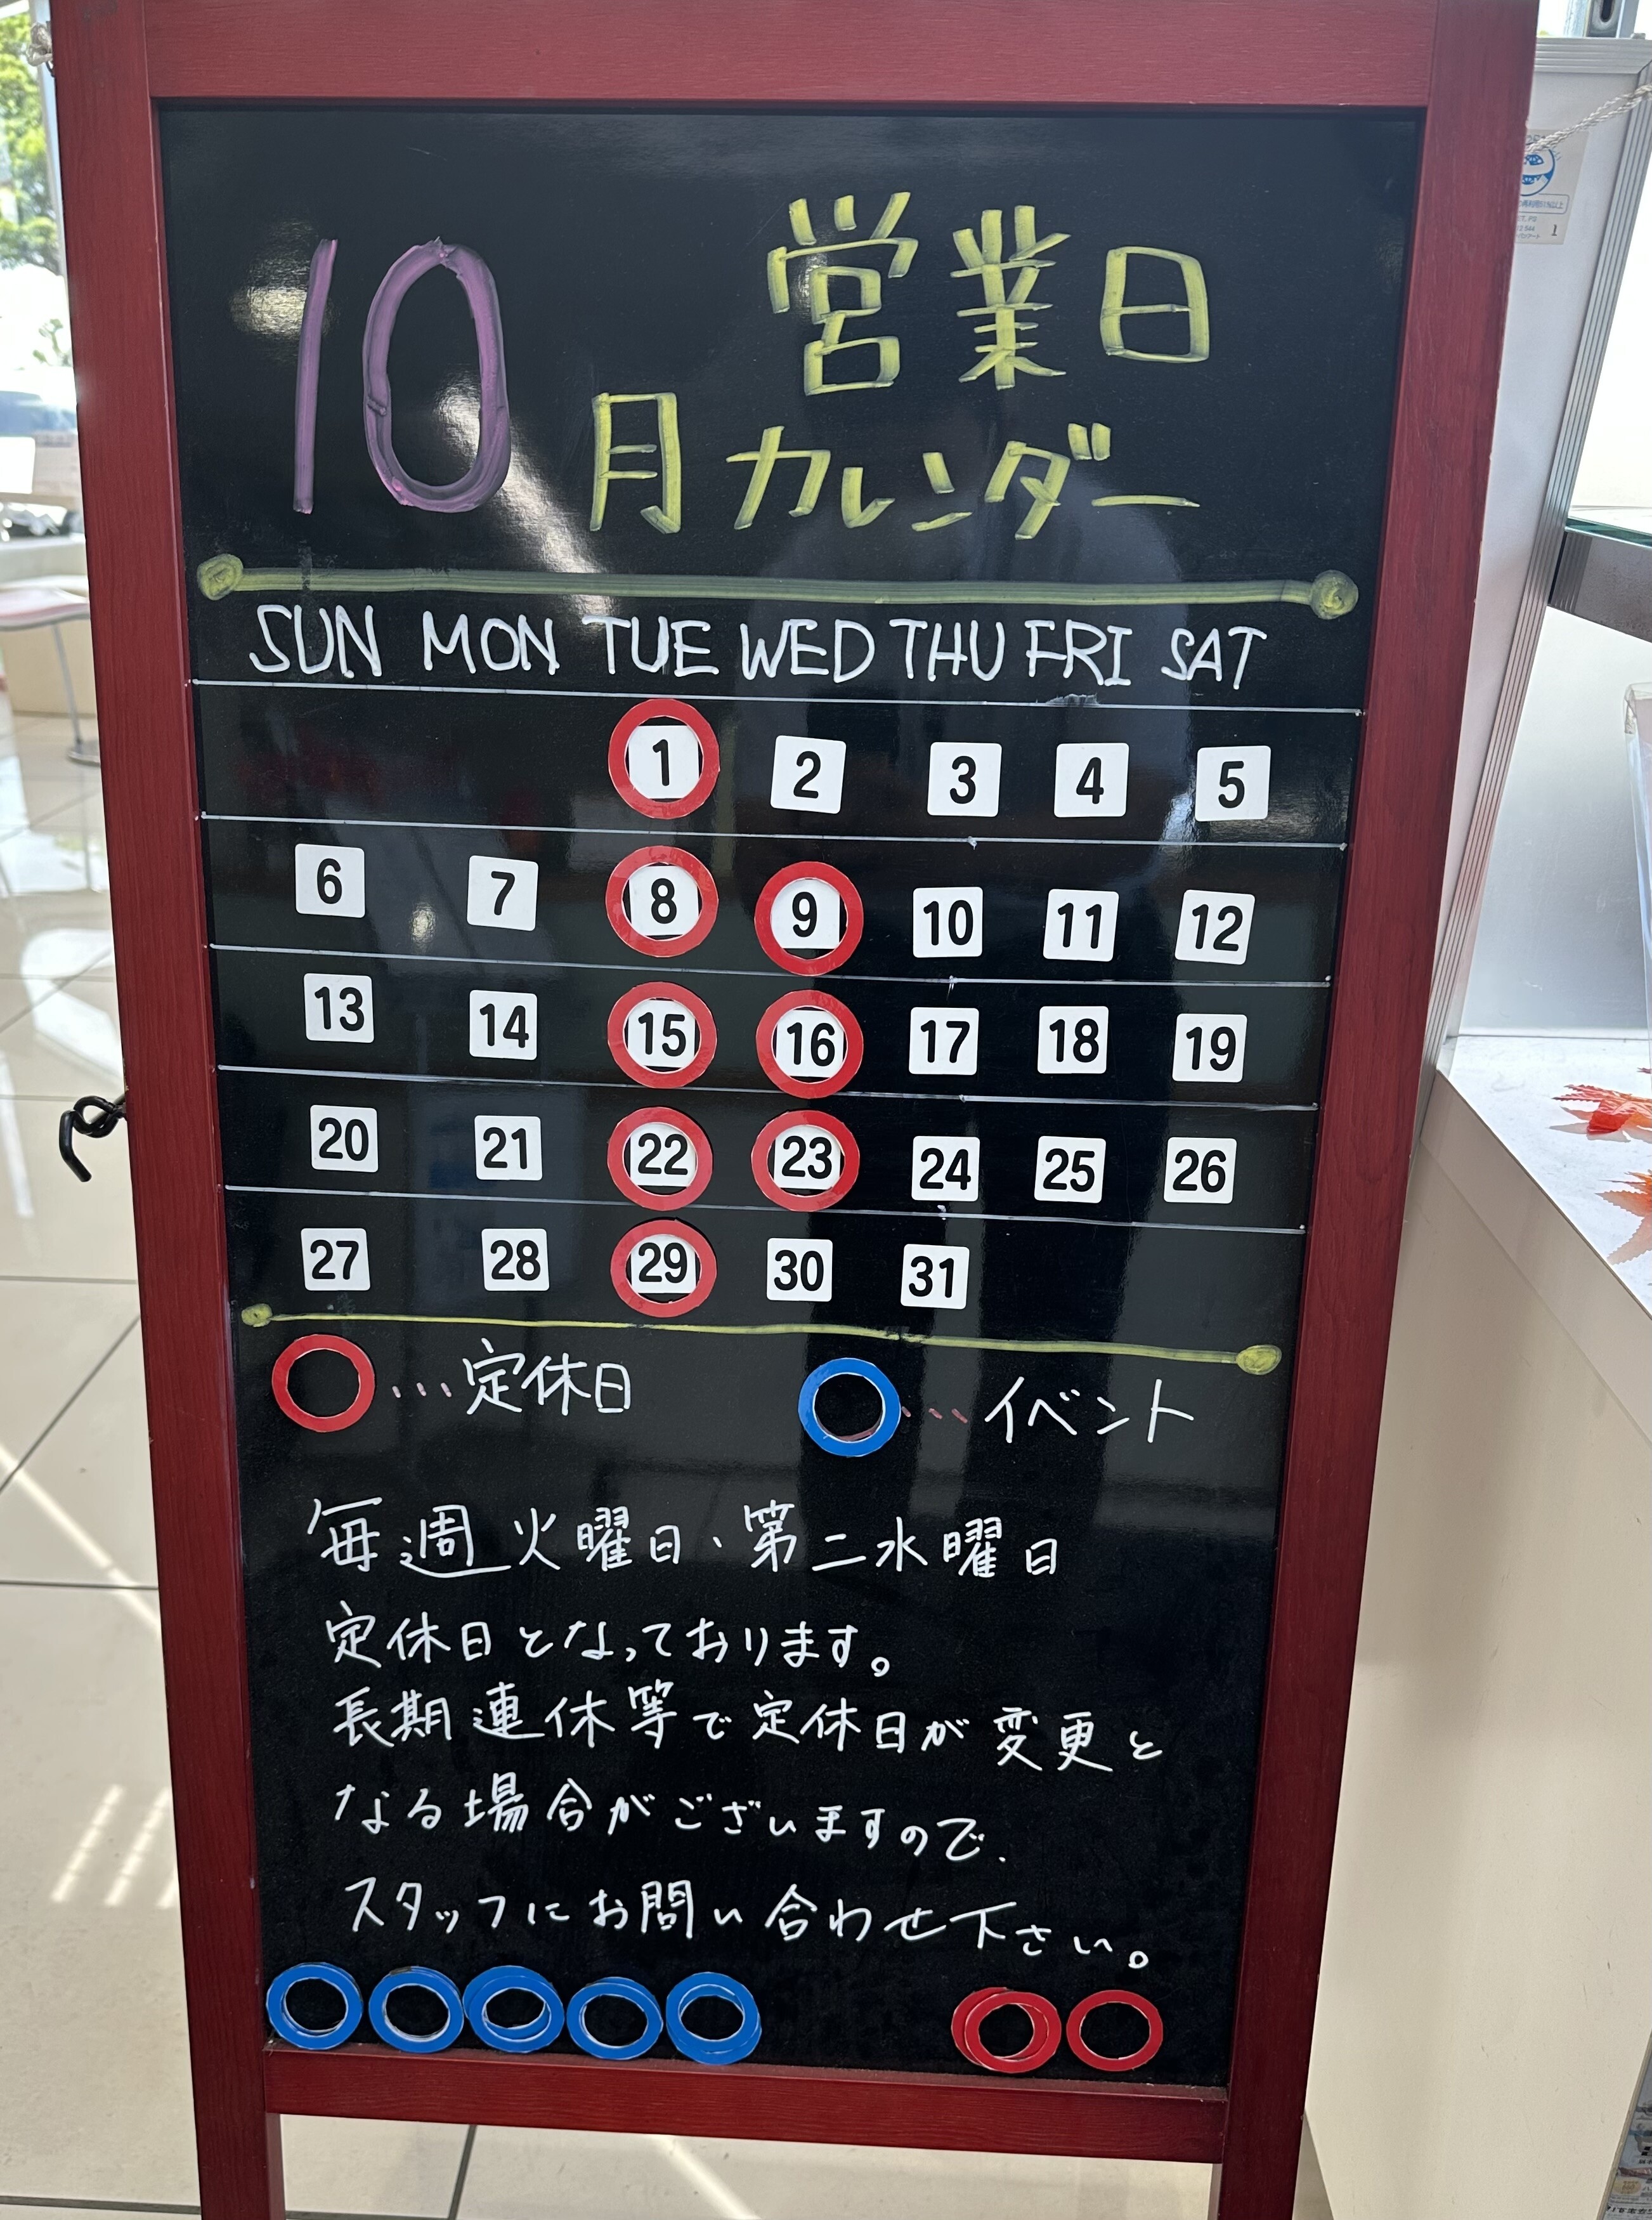 10月 営業日
カレンダー
SUN MON TUE WED THU FRI SAT
1 2 3 4 5
6 7 8 9 10 11 12
13 14 15 16 17 18 19
20 21 22 23 24 25 26
27 28 29 30 31
…定休日 …イベント
毎週火曜日・第二水曜日
定休日となっております。
長期連休等で定休日が変更と
なる場合がございますので、
スタッフにお問い合わせ下さい。